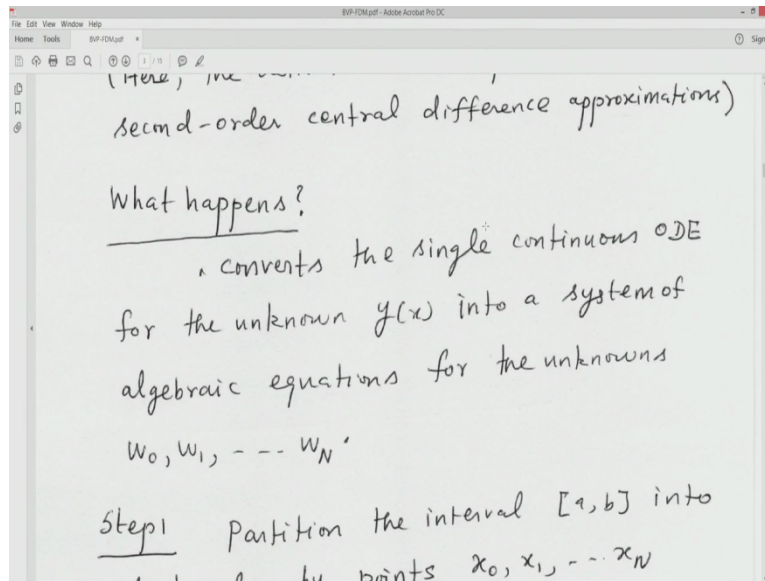 BVP-FDM.pdf - Adobe Acrobat Pro DC
File Edit View Window Help
Home Tools BVP-FDM.pdf × Sign
1 / 15
(Here, the
second-order central difference approximations)
What happens?
converts the single continuous ODE
for the unknown y(x) into a system of
algebraic equations for the unknowns
w₀, w₁, - -- w_N.
Step 1 Partition the interval [a, b] into
by points x₀, x₁, - -- x_N